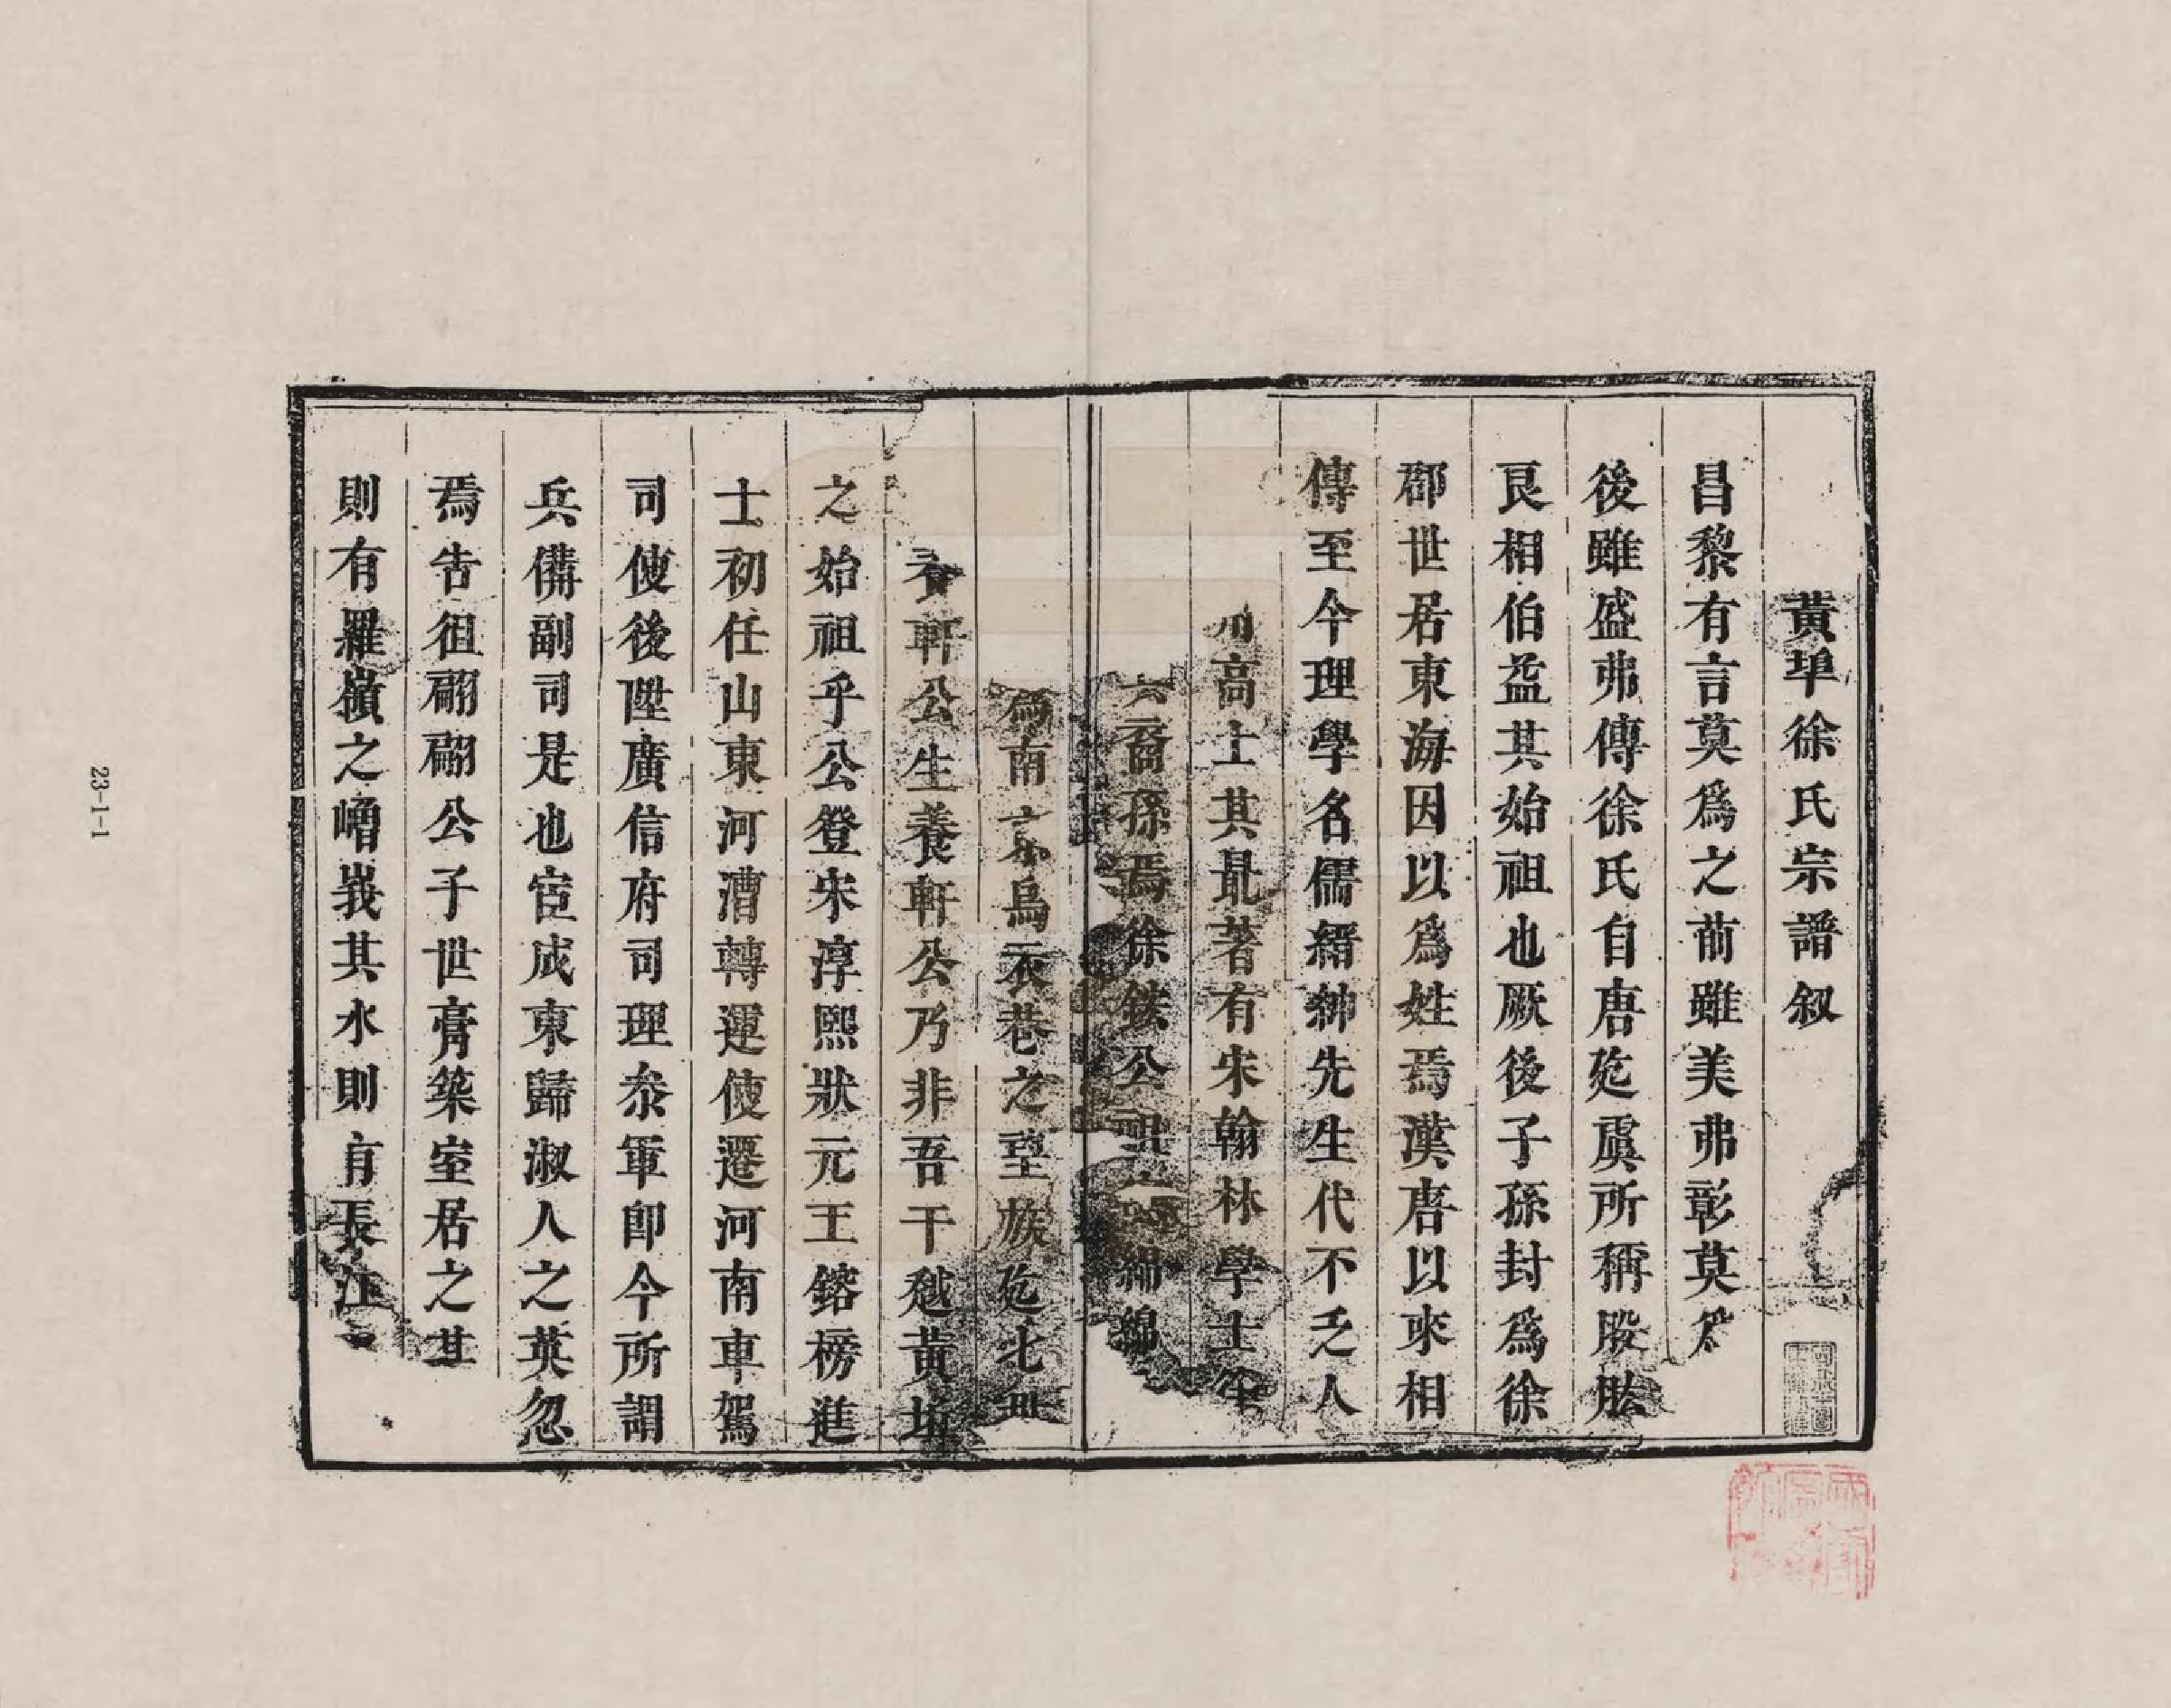 黃埠徐氏宗譜叙
昌黎有言莫爲之前雖美弗彰莫爲
後雖盛弗傳徐氏自唐迄虞所稱股肱
良相伯益其始祖也厥後子孫封爲徐
郡世居東海因以爲姓焉漢唐以來相
傳至今理學名儒縉紳先生代不乏人
高士其最著有宋翰林學士
六裔孫焉徐鉉公祖 綿綿
爲南京烏衣巷之望族迄七世
軒公生養軒公乃非吾干越黃埠
之始祖乎公登宋淳熙狀元王鎔榜進
士初任山東河漕轉運使遷河南車駕
司使後陞廣信府司理叅軍卽今所謂
兵備副司是也宦成東歸淑人之英忽
焉告徂翮翮公子世膏築室居之其
則有羅嶺之嶆峩其水則有長江
23-1-1